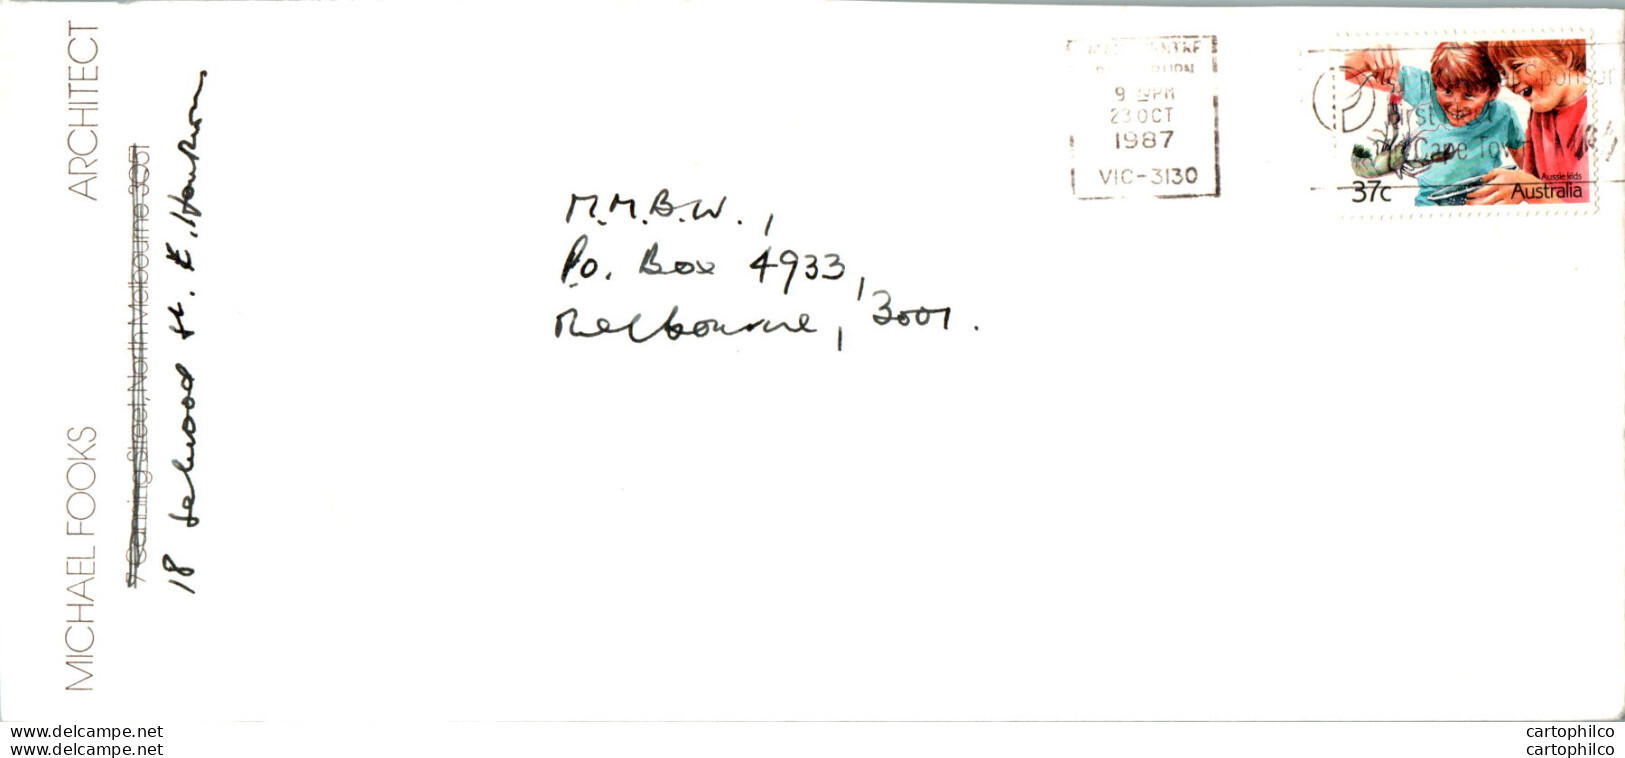 MICHAEL FOOKS ARCHITECT
Street, North Melbourne 3051
18 St. E. Hawthorn
M.M.B.W.,
P.O. Box 4933,
Melbourne, 3001.
9 PM
23 OCT
1987
VIC-3130
Sponsor
First
Cape Town
Aussie kids
37c Australia
www.delcampe.net
www.delcampe.net
cartophilco
cartophilco